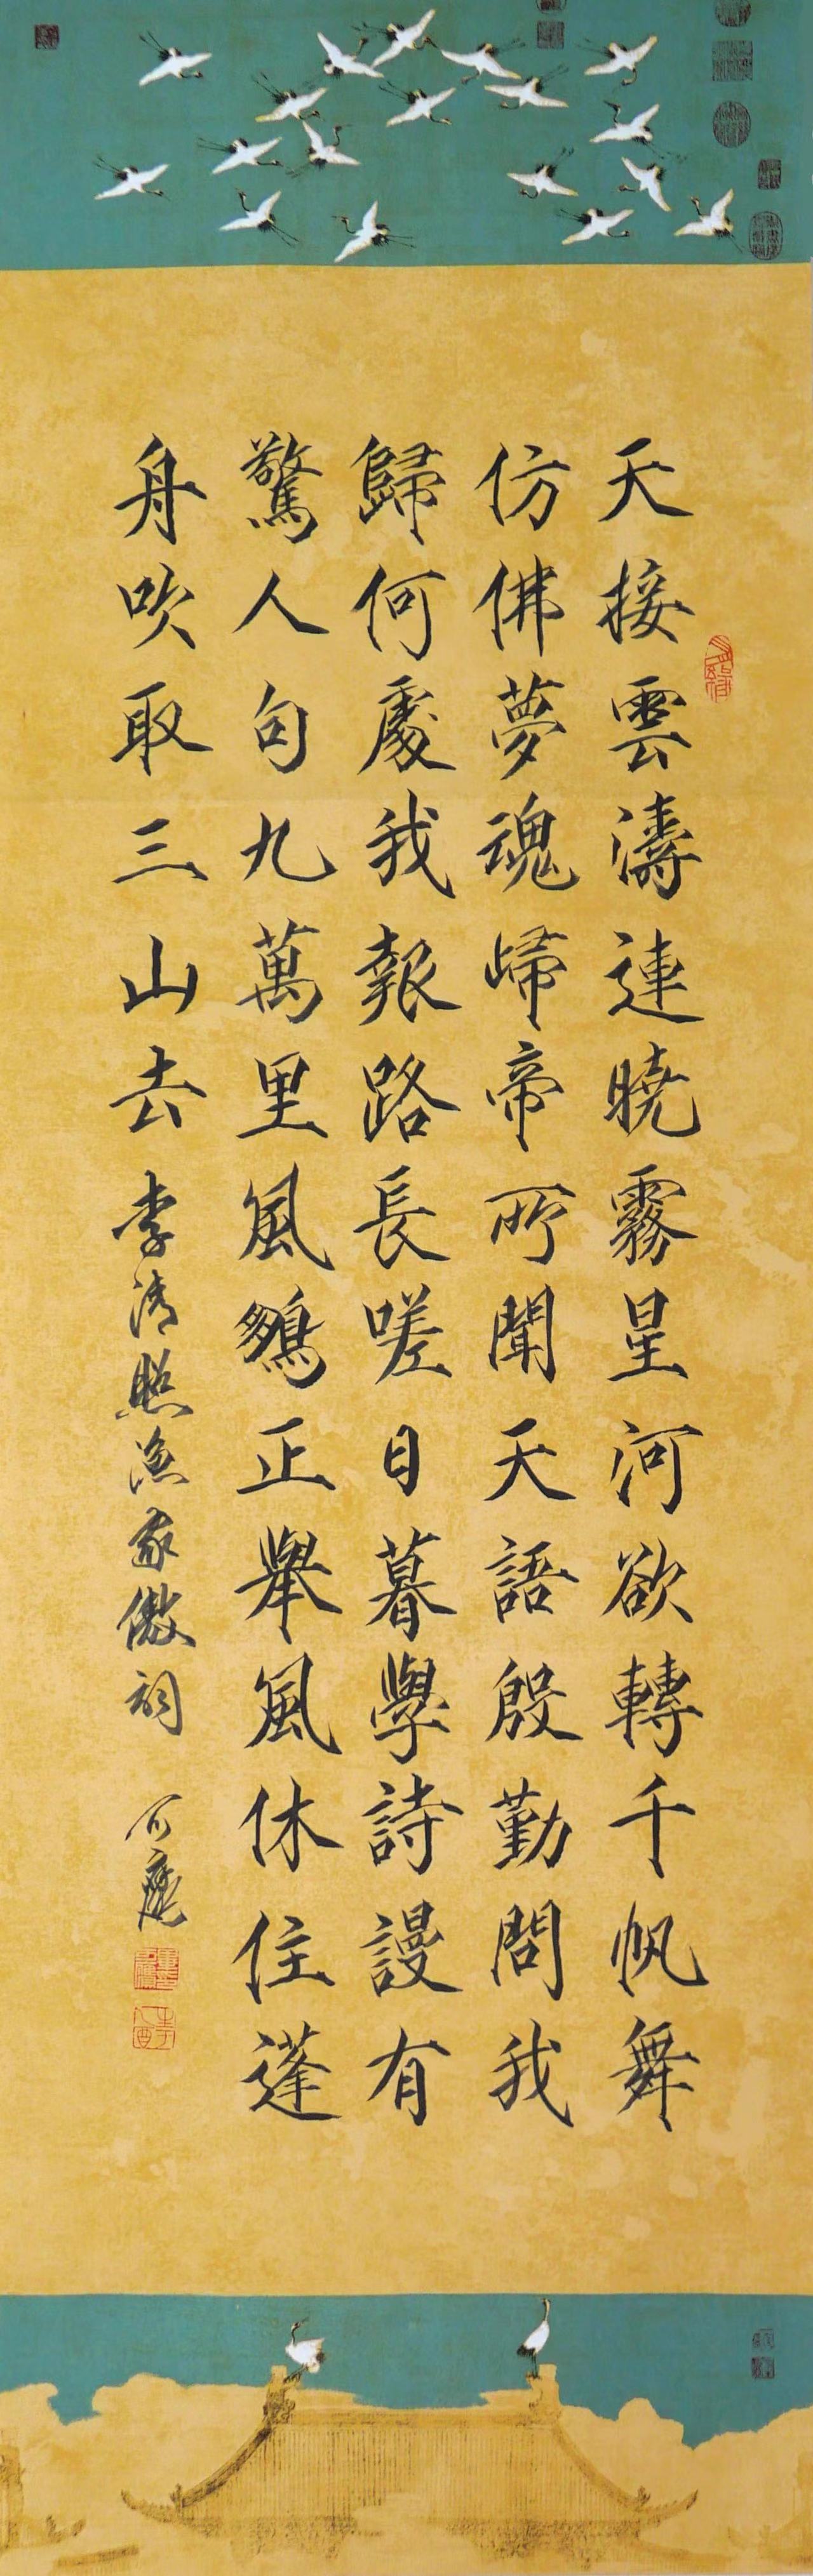 天接雲濤連曉霧星河欲轉千帆舞
仿佛夢魂歸帝所聞天語殷勤問我
歸何處我報路長嗟日暮學詩謾有
驚人句九萬里風鵬正舉風休住蓬
舟吹取三山去李清照漁家傲詞